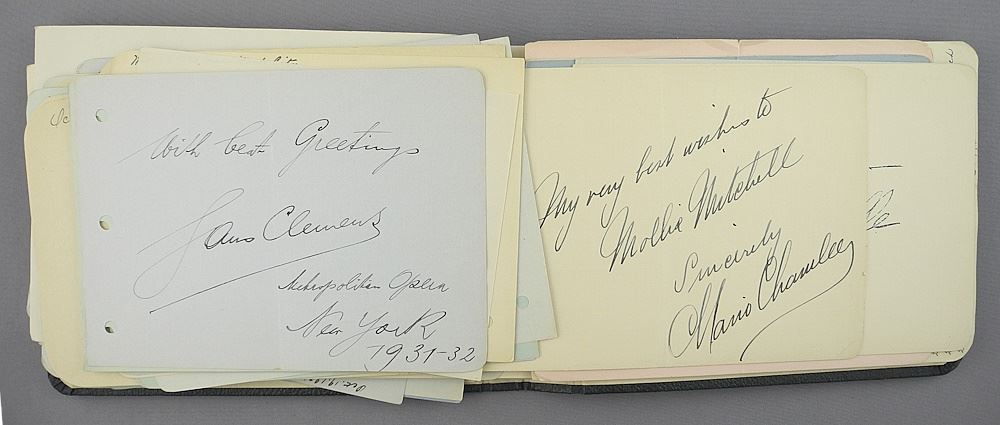 With best Greetings
Hans Clemens
Metropolitan Opera
New York
1931-32
My very best wishes to
Mollie Mitchell
Sincerely
Mario Chamlee